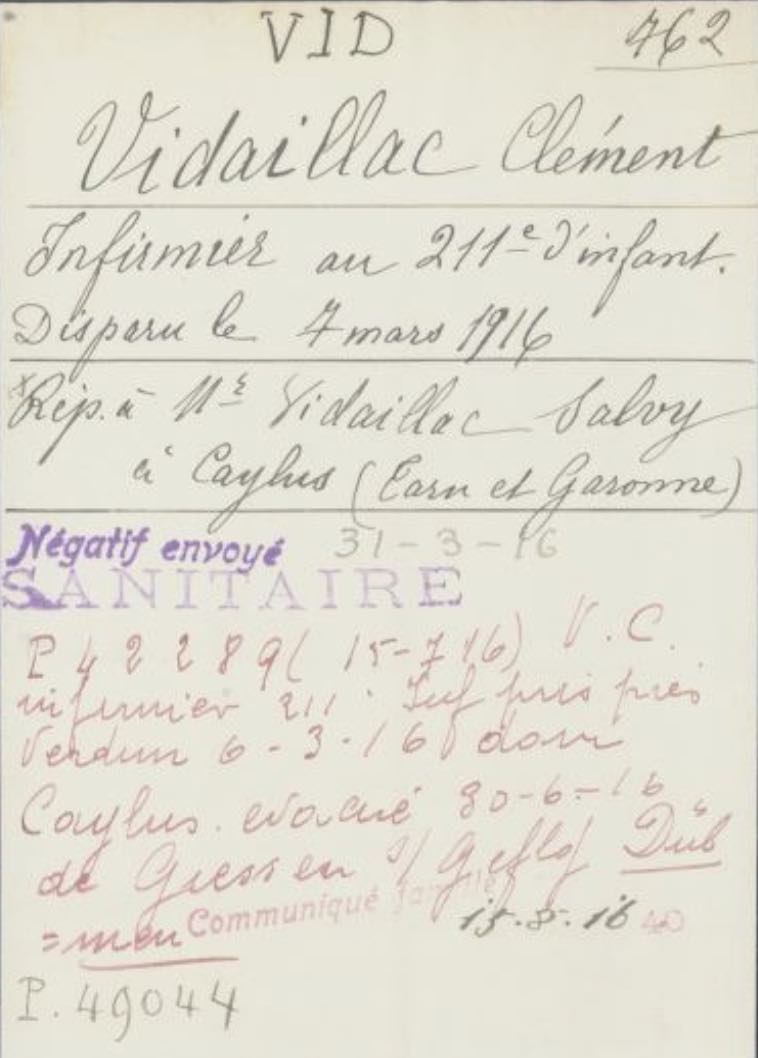 VID 762
Vidaillac Clément
Infirmier au 211e d'infant.
Disparu le 7 mars 1916
Rép. à Mr Vidaillac Salvy
à Caylus (Tarn et Garonne)
Négatif envoyé 31-3-16
SANITAIRE
P 42289 (15-7-16) V.C.
infirmier 211. Inf pris près
Verdun 6-3-16 dom
Caylus. evacué 30-6-16
de Giessen s/ Geflgf Dül
=men Communiqué famille 15.8.16 40
P. 49044